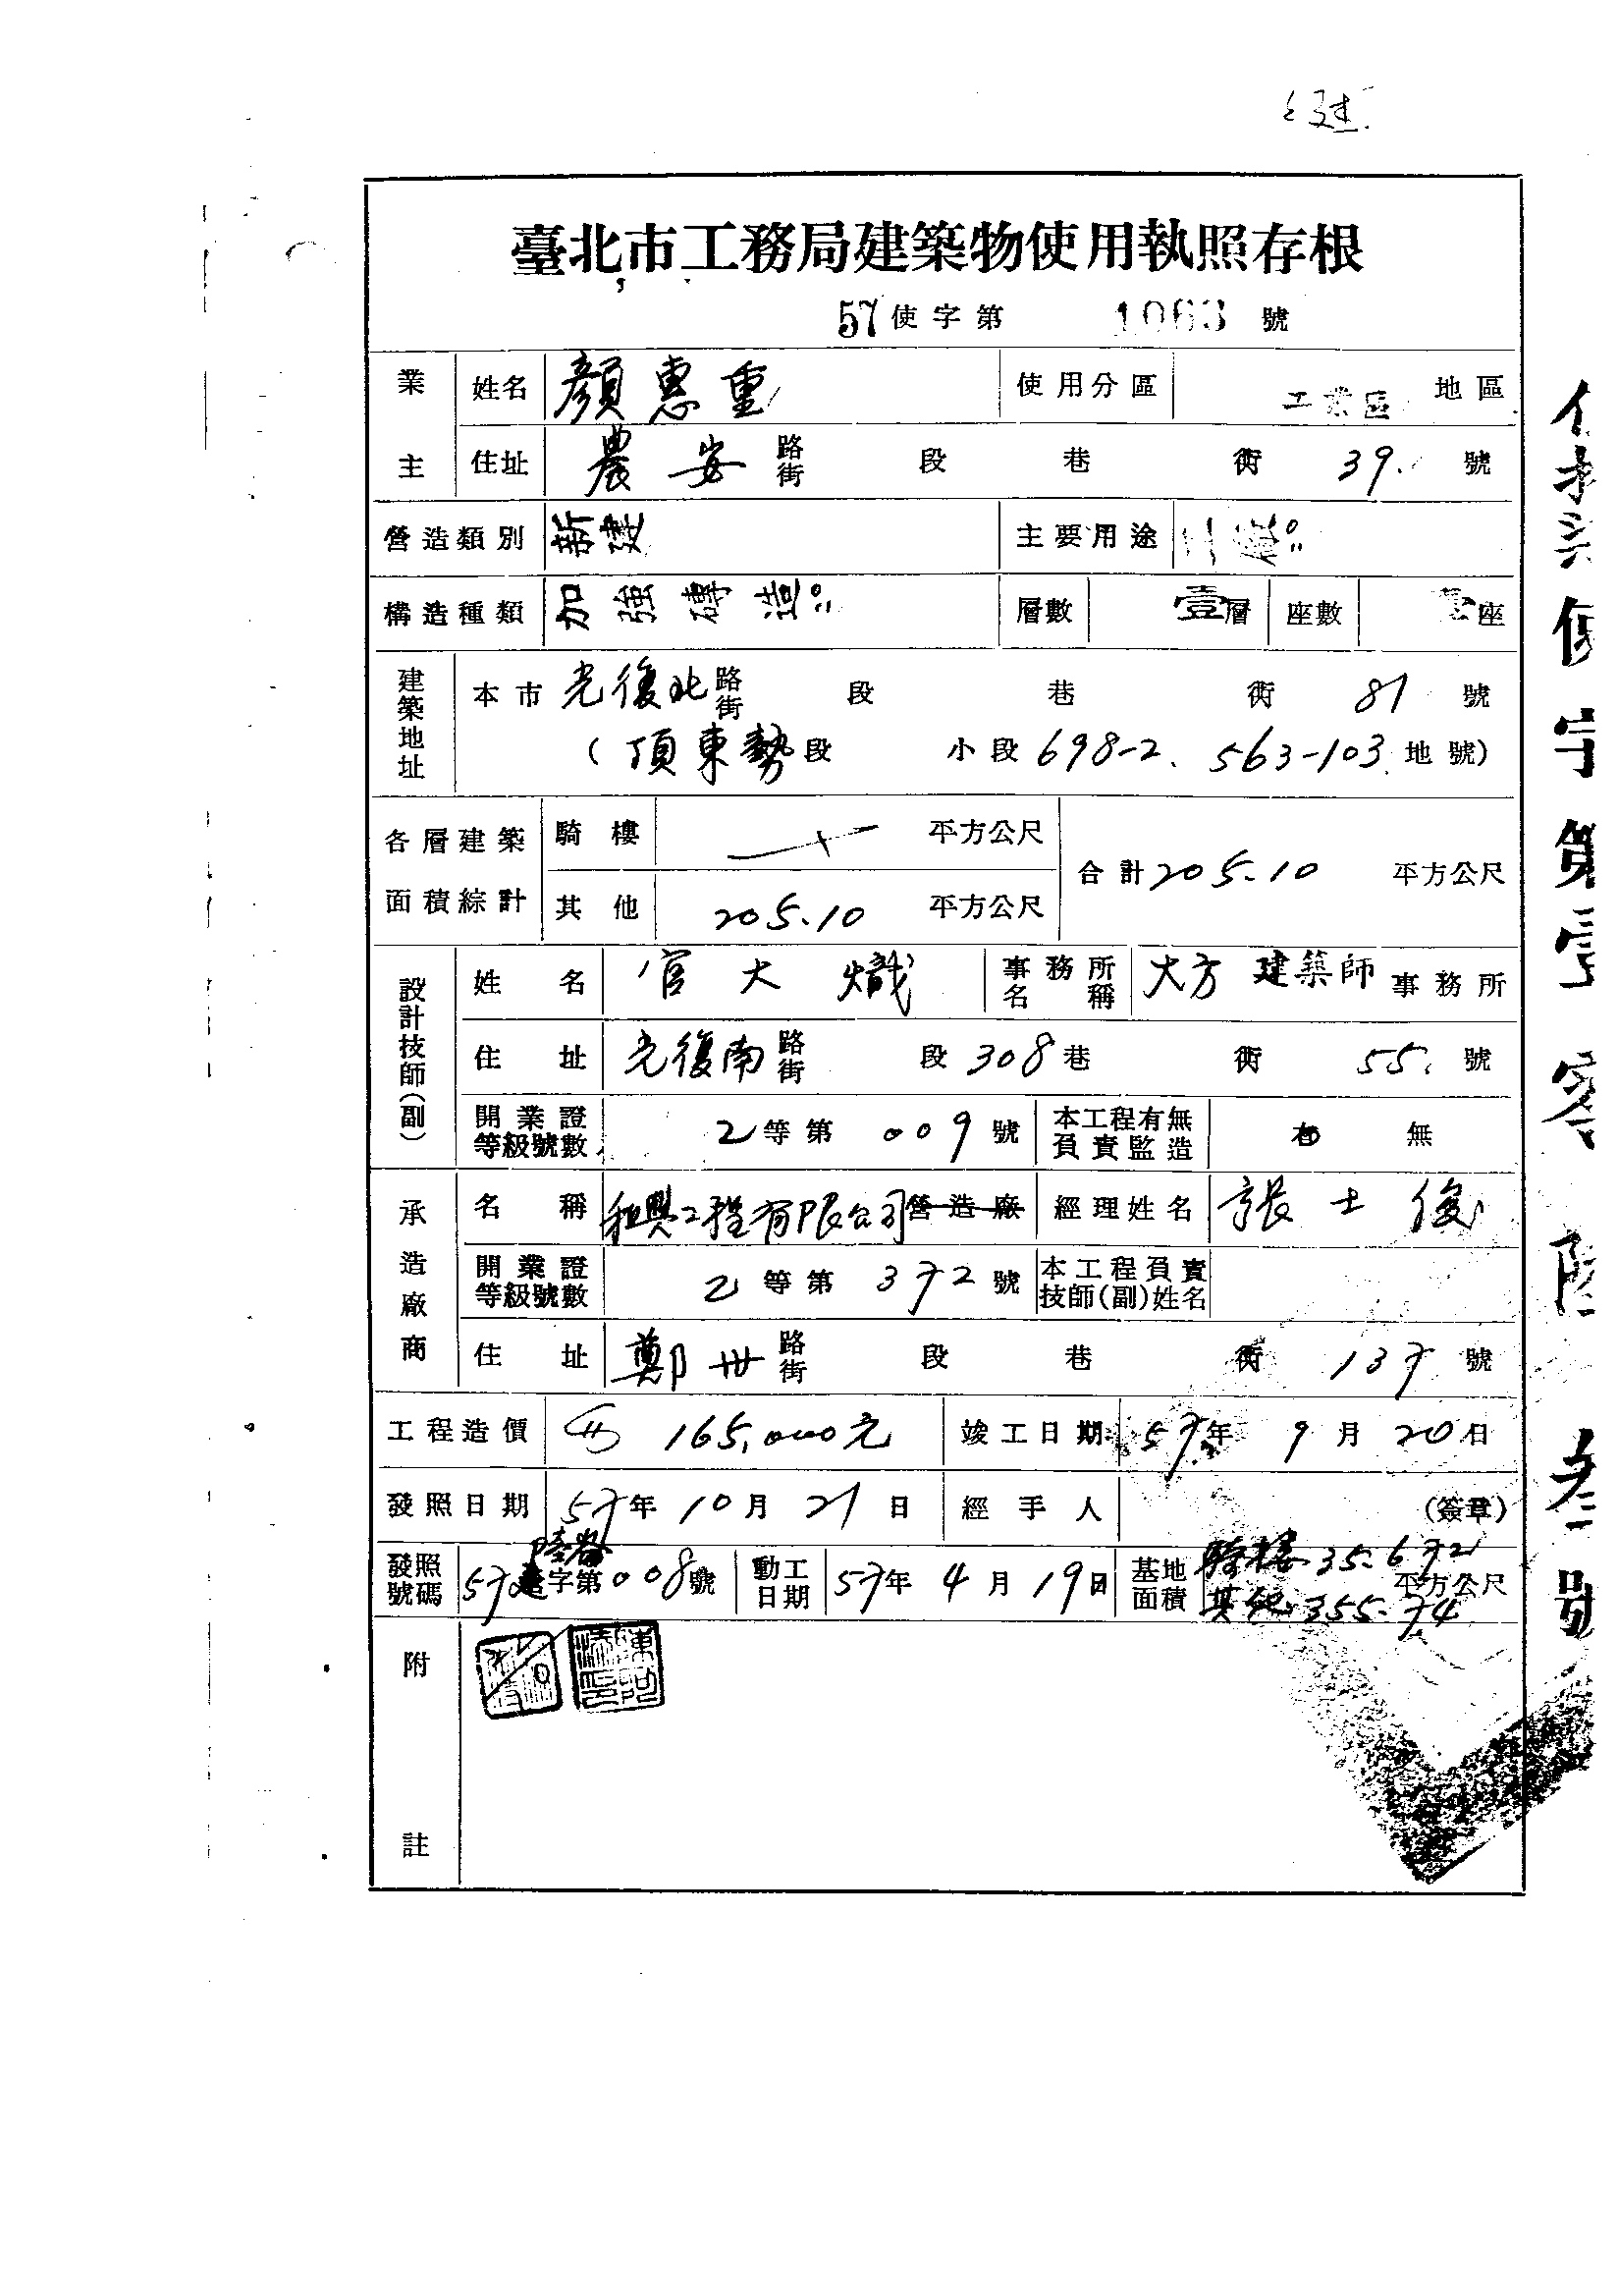 臺北市工務局建築物使用執照存根
57使字第 1063 號
業主 姓名 顏惠重 使用分區 工業區 地區
住址 農安 路街 段 巷 衖 39. 號
營造類別 新建 主要用途
構造種類 加強磚造 層數 壹層 座數 座
建築地址 本市 光復北 路街 段 巷 衖 81 號
(頂東勢段 小段 698-2、563-103 地號)
各層建築面積綜計 騎樓 平方公尺 合計 205.10 平方公尺
其他 205.10 平方公尺
設計技師(副) 姓名 官大熾 事務所名稱 大方建築師事務所
住址 光復南 路街 段 308 巷 衖 55. 號
開業證等級號數 乙等第 009 號 本工程有無負責監造 無
承造廠商 名稱 和興工程有限公司營造廠 經理姓名 張士俊
開業證等級號數 乙等第 372 號 本工程負責技師(副)姓名
住址 鄭州 路街 段 巷 衖 137 號
工程造價 165,000元 竣工日期 57年 9月 20日
發照日期 57年 10月 21日 經手人 (簽章)
發照號碼 57 建字第 008號 動工日期 57年 4月 19日 基地面積 騎樓 35.672 其他 355.74 平方公尺
附註
使字第壹零陸叁號